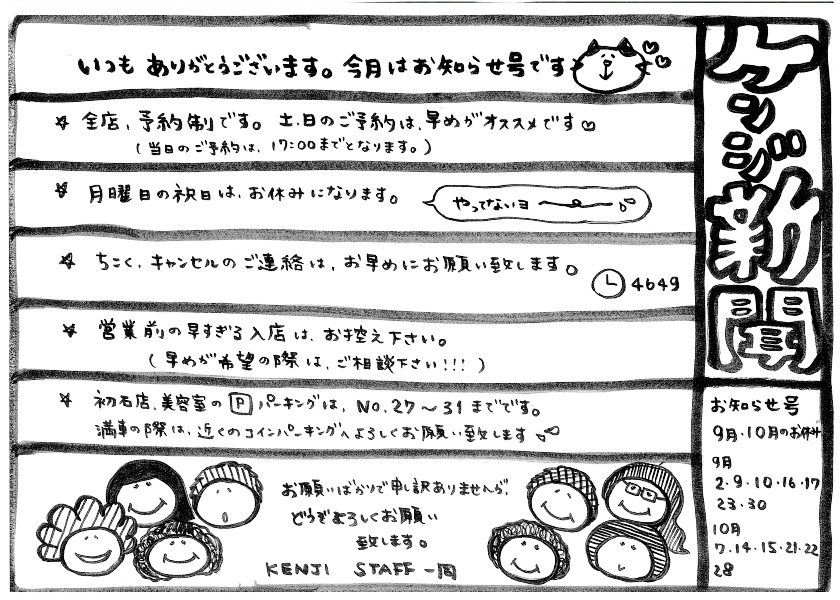 ケンジ新聞
いつも ありがとうございます。今月はお知らせ号です
☆ 全店、予約制です。 土、日のご予約は、早めがオススメです♡
(当日のご予約は、17:00までとなります。)
☆ 月曜日の祝日は、お休みになります。
やってないヨ
☆ ちこく、キャンセルのご連絡は、お早めにお願い致します。
4649
☆ 営業前の早すぎる入店は、お控え下さい。
(早めが希望の際は、ご相談下さい!!!)
☆ 初石店、美容室の P パーキングは、NO.27〜31までです。
満車の際は、近くのコインパーキングへよろしくお願い致します
お願いばかりで申し訳ありませんが、
どうぞよろしくお願い
致します。
KENJI STAFF 一同
お知らせ号
9月・10月のお休み
9月
2・9・10・16・17
23・30
10月
7・14・15・21・22
28